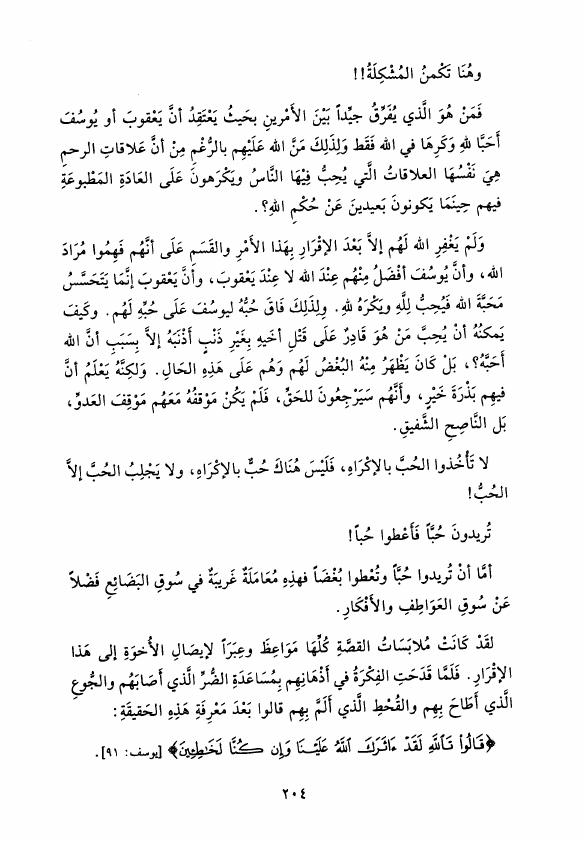 وهُنَا تَكْمنُ المُشْكِلَةُ!!
فَمَنْ هُوَ الَّذي يُفَرِّقُ جيِّداً بَيْنَ الأَمْرينِ بحَيثُ يَعْتَقِدُ أنَّ يَعْقوبَ أو يُوسُفَ
أَحَبَّا للهِ وَكَرِهَا في الله فَقَط وَلِذَلِكَ مَنَّ الله عَلَيْهِم بالرُّغْمِ مِنْ أنَّ عَلاقاتِ الرحمِ
هِيَ نَفْسُهَا العلاقاتُ الَّتي يُحِبُّ فِيْهَا النَّاسُ ويَكْرهونَ عَلَى العَادَةِ المَطْبوعَةِ
فيهم حِينَمَا يَكونونَ بَعيدينَ عَنْ حُكْمِ اللهِ؟.
وَلَمْ يَغْفِرِ الله لَهُم إلاَّ بَعْدَ الإقْرارِ بِهَذا الأَمْرِ والقَسَمِ عَلَى أنَّهُم فَهِمُوا مُرَادَ
الله، وأنَّ يُوسُفَ أفْضَلُ مِنْهُم عِنْدَ الله لا عِنْدَ يَعقوبَ، وأنَّ يَعْقوبَ إنَّمَا يَتَحَسَّسُ
مَحَبَّةَ الله فَيُحِبُّ لِلَّهِ ويَكْرَهُ للهِ. ولِذلِكَ فَاقَ حُبُّهُ ليوسُفَ عَلَى حُبِّهِ لَهُم. وكَيفَ
يَمكنُهُ أنْ يُحِبَّ مَنْ هُوَ قَادِرٌ عَلَى قَتْلِ أخيهِ بِغَيْرِ ذَنْبٍ أَذْنَبَهُ إلاَّ بِسَبَبِ أنَّ الله
أحَبَّهُ؟، بَلْ كَانَ يَظْهَرُ مِنْهُ البُغْضُ لَهُم وَهُم عَلَى هَذِهِ الحَالِ. وَلكِنَّهُ يَعْلَمُ أنَّ
فيهِم بَذْرَةَ خَيْرٍ، وأنَّهُم سَيَرْجِعُونَ للحَقِّ، فَلَمْ يَكُنْ مَوْقفُهُ مَعَهُم مَوْقِفَ العَدوِّ،
بَل النَّاصِحِ الشَّفيقِ.
لا تَأْخُذوا الحُبَّ بالإكْرَاهِ، فَلَيْسَ هُنَاكَ حُبٌّ بالإكْرَاهِ، ولا يَجْلِبُ الحُبَّ إلاَّ
الحُبُّ!
تُريدونَ حُبَّاً فَأَعْطوا حُباً!
أمَّا أنْ تُريدوا حُبَّاً وتُعْطوا بُغْضَاً فهذِهِ مُعَامَلَةٌ غَريبَةٌ في سُوقِ البَضَائِعِ فَضْلاً
عَنْ سُوقِ العَوَاطِفِ والأَفْكَارِ.
لقَدْ كَانَتْ مُلابَسَاتُ القصَّةِ كُلُّهَا مَوَاعِظَ وعِبَرَاً لإيصَالِ الأُخوَةِ إلى هَذا
الإقْرَارِ. فَلَمَّا قَدَحَتِ الفِكْرَةُ في أذْهَانِهِم بِمُسَاعَدَةِ الضُرِّ الَّذي أصَابَهُم والجُوعِ
الَّذي أطَاحَ بِهِم والقُحْطِ الَّذي أَلَمَّ بِهِم قالوا بَعْدَ مَعْرِفَةِ هَذِهِ الحَقيقَةِ:
﴿قَالُوا۟ تَٱللَّهِ لَقَدْ ءَاثَرَكَ ٱللَّهُ عَلَيْنَا وَإِن كُنَّا لَخَٰطِـِٔينَ﴾ [يوسف: ٩١].
٢٠٤